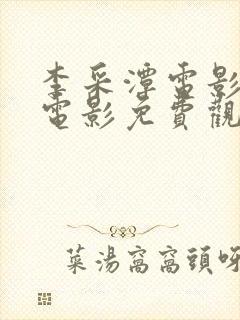 李采潭電影
電影免費觀
菜湯窩窩頭呀